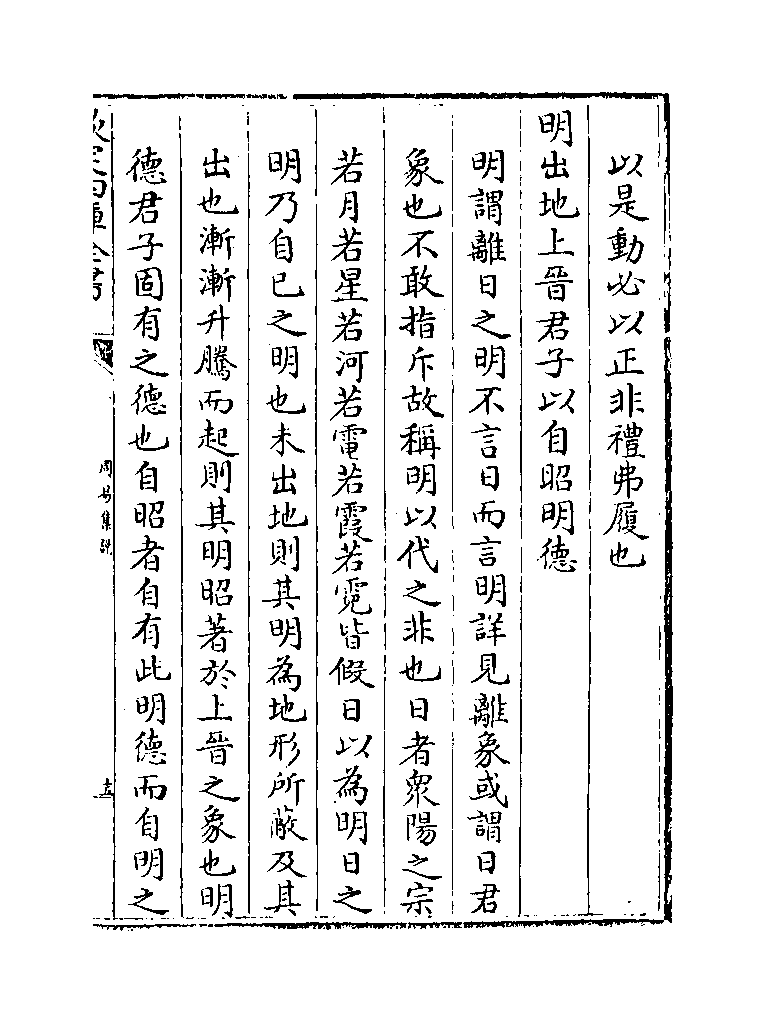 以是動必以正非禮弗履也
明出地上晉君子以自昭明德
明謂離日之明不言日而言明詳見離象或謂日君
象也不敢指斥故稱明以代之非也日者衆陽之宗
若月若星若河若電若霞若霓皆假日以為明日之
明乃自已之明也未出地則其明為地形所蔽及其
出也漸漸升騰而起則其明昭著於上晉之象也明
德君子固有之德也自昭者自有此明德而自明之
欽定四庫全書
周易集說
十五